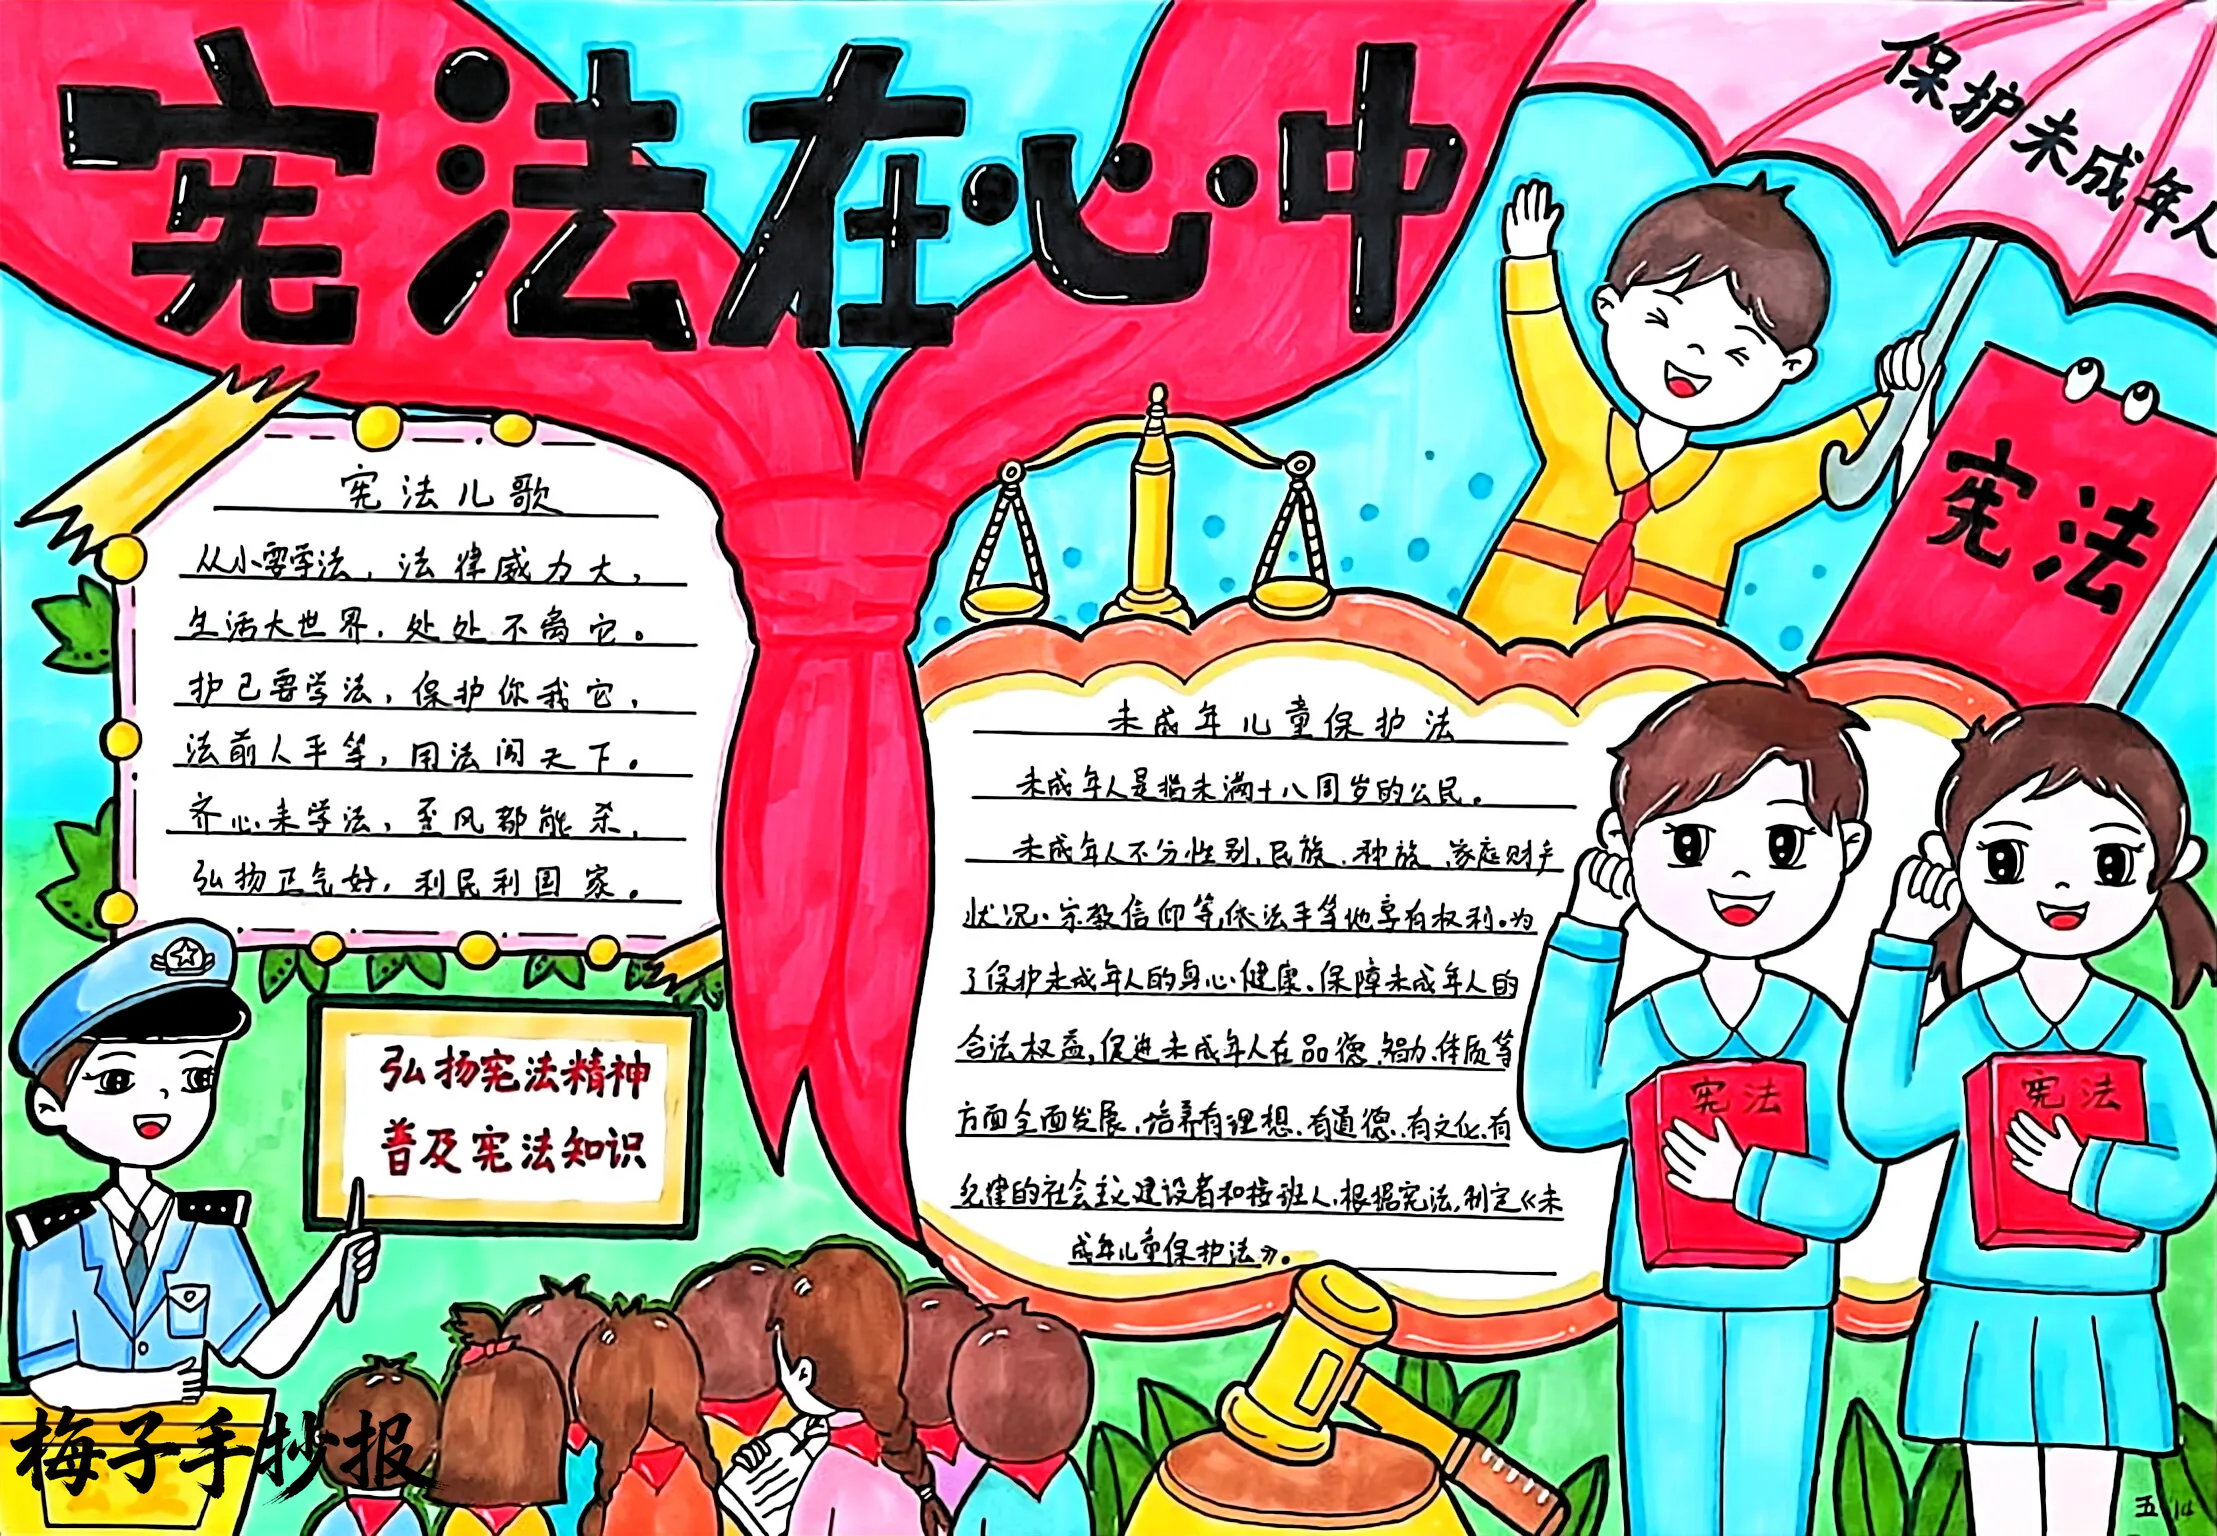 宪法在心中
保护未成年人
宪法
宪法儿歌
从小要学法，法律威力大，
生活大世界，处处不离它。
护己要学法，保护你我它，
法前人平等，用法闯天下。
齐心来学法，歪风都能杀，
弘扬正气好，利民利国家。
弘扬宪法精神
普及宪法知识
未成年儿童保护法
未成年人是指未满十八周岁的公民。
未成年人不分性别、民族、种族、家庭财产
状况、宗教信仰等，依法平等地享有权利。为
了保护未成年人的身心健康、保障未成年人的
合法权益，促进未成年人在品德、智力、体质等
方面全面发展，培养有理想、有道德、有文化、有
纪律的社会主义建设者和接班人，根据宪法，制定《未
成年儿童保护法》。
宪法
宪法
梅子手抄报
五 14